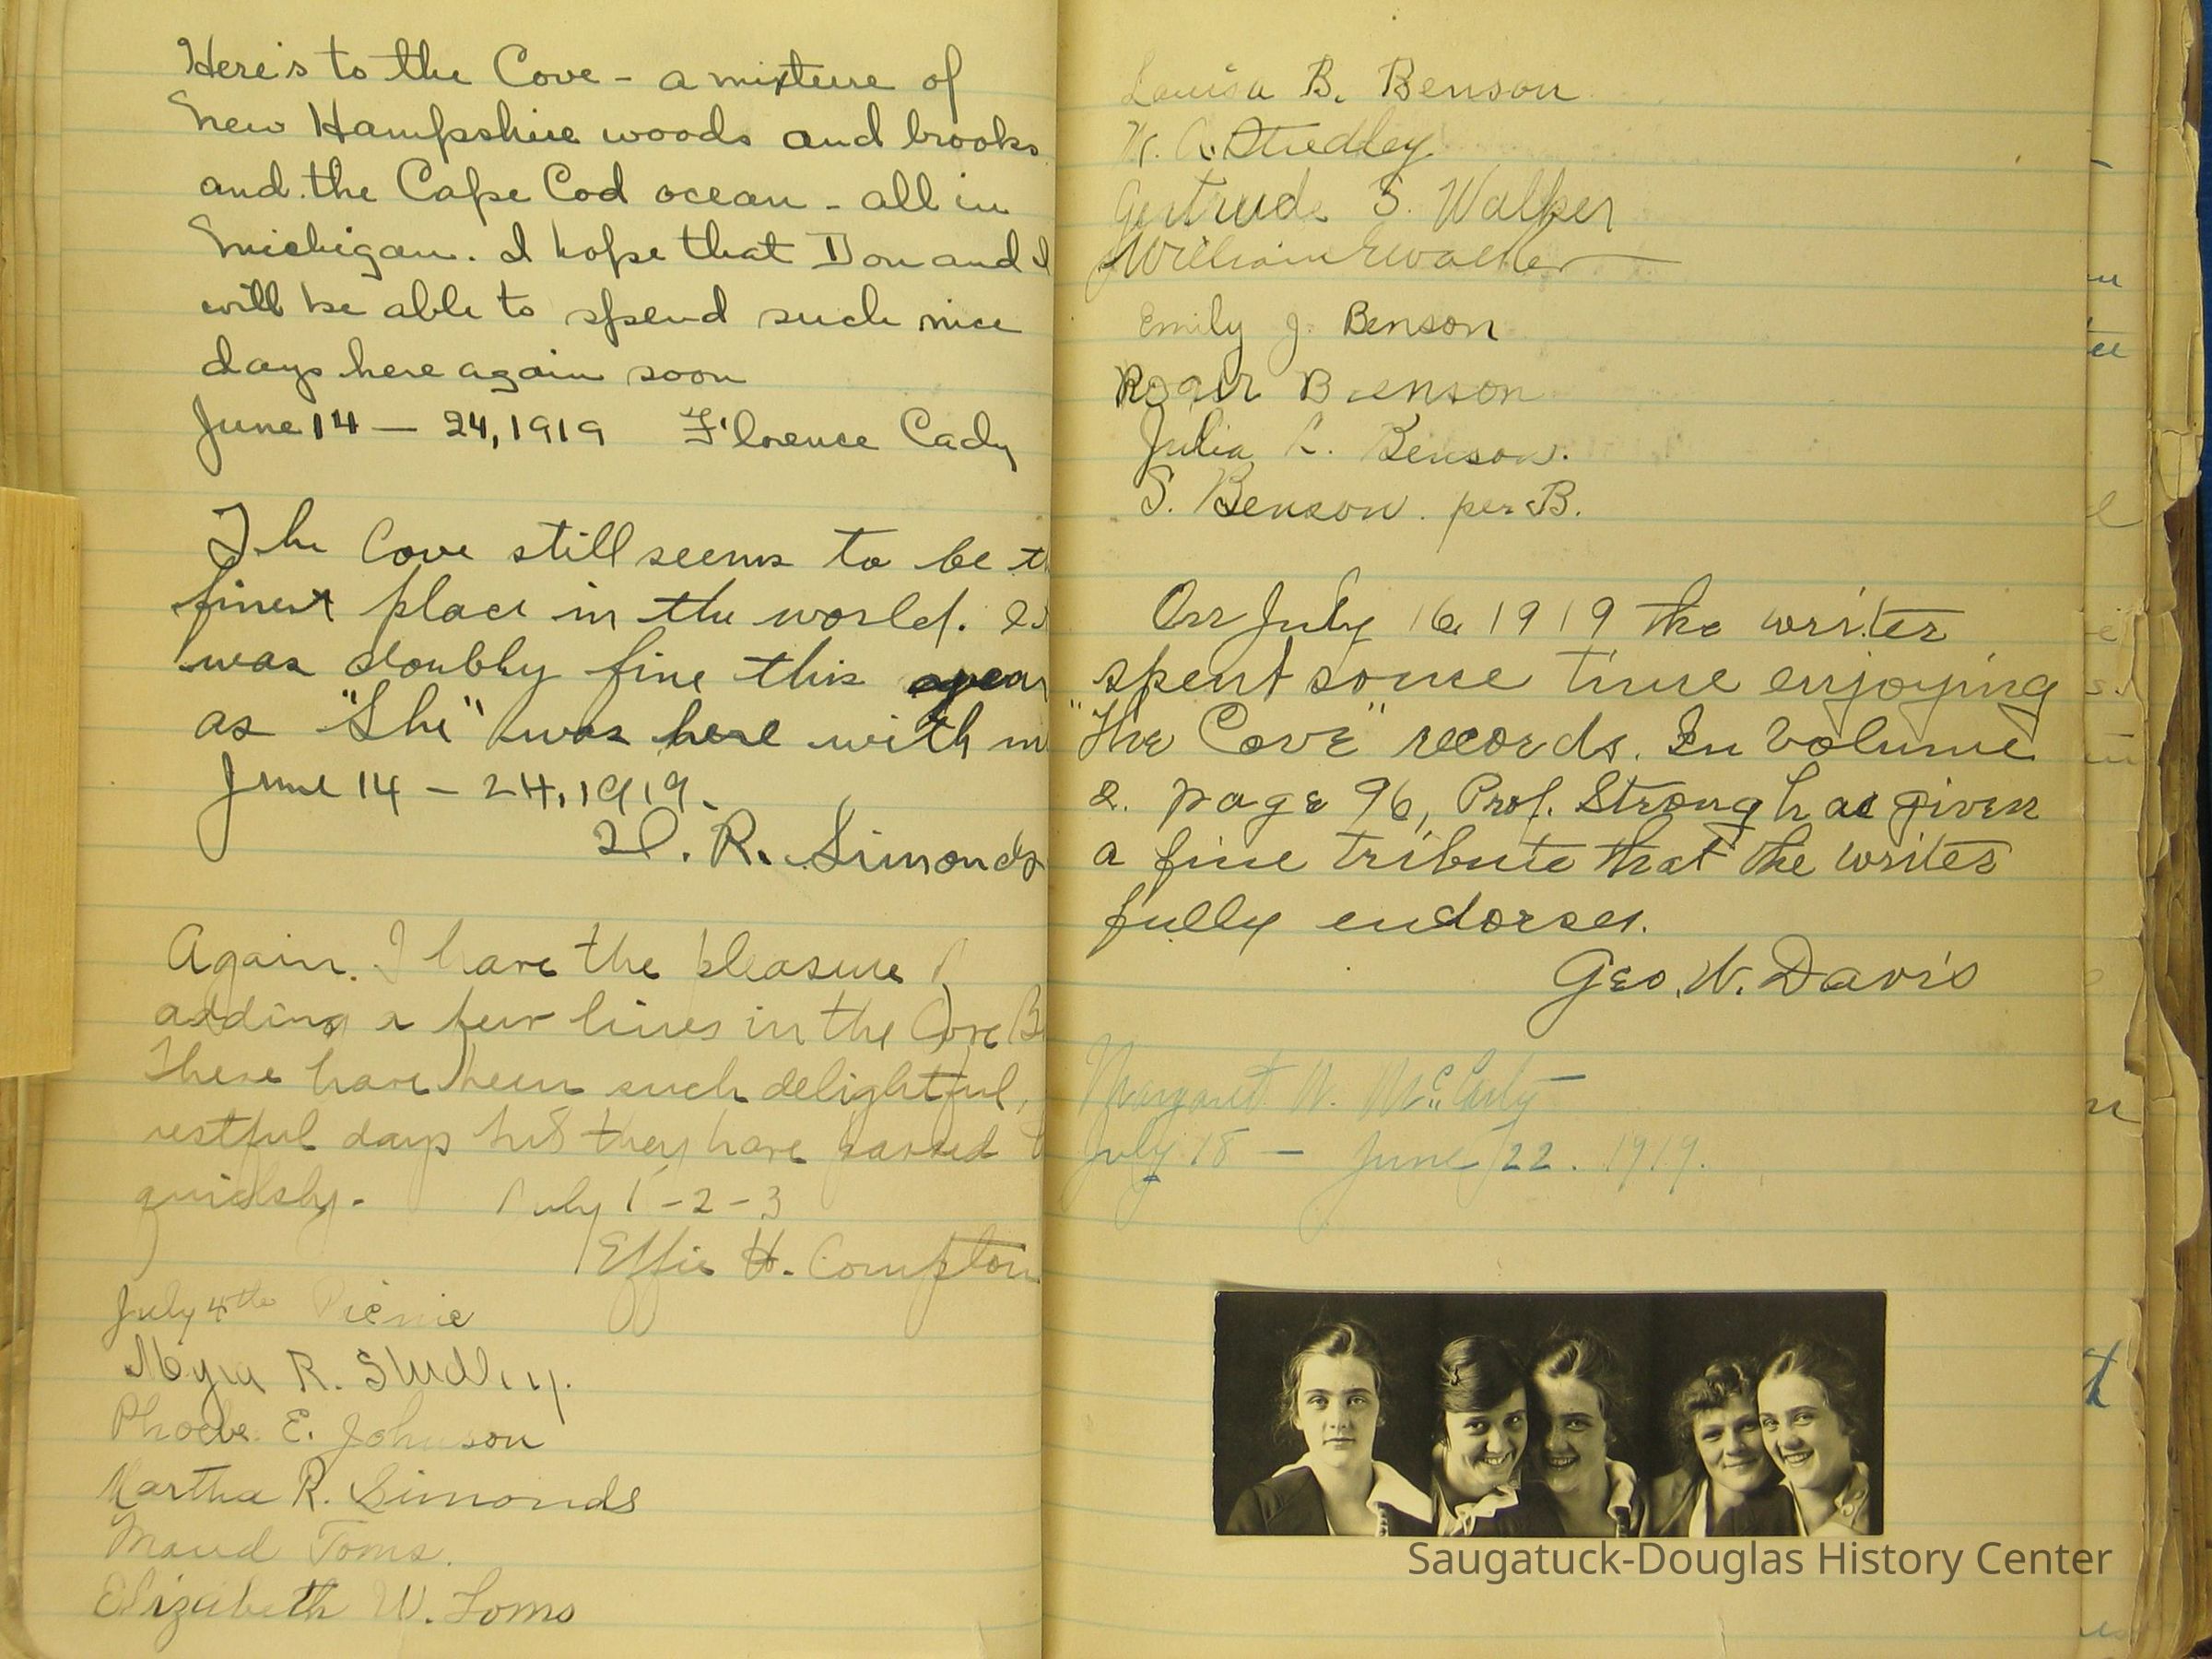 Here's to the Cove - a mixture of
New Hampshire woods and brooks
and the Cape Cod ocean - all in
Michigan. I hope that Don and I
will be able to spend such nice
days here again soon
June 14 — 24, 1919 Florence Cady
The Cove still seems to be th
finest place in the world. It
was doubly fine this year
as "She" was here with m
June 14 - 24, 1919.
D. R. Simonds
Again I have the pleasure of
adding a few lines in the Cove B
These have been such delightful,
restful days but they have passed t
quickly. July 1 - 2 - 3
Effie H. Compton
July 4th Picnic
Myra R. Studley.
Phoebe E. Johnson
Martha R. Simonds
Maud Toms.
Elizabeth W. Toms
Louisa B. Benson
W. A. Studley
Gertrude S. Walker
William E Walker
Emily J. Benson
Roger Benson
Julia L. Benson.
S. Benson. per B.
On July 16 1919 the writer
spent some time enjoying
"The Cove" records. In Volume
2. page 96, Prof. Strong has given
a fine tribute that the writer
fully endorses.
Geo. W. Davis
Margaret W. McCarty
July 18 — June 22. 1919.
Saugatuck-Douglas History Center